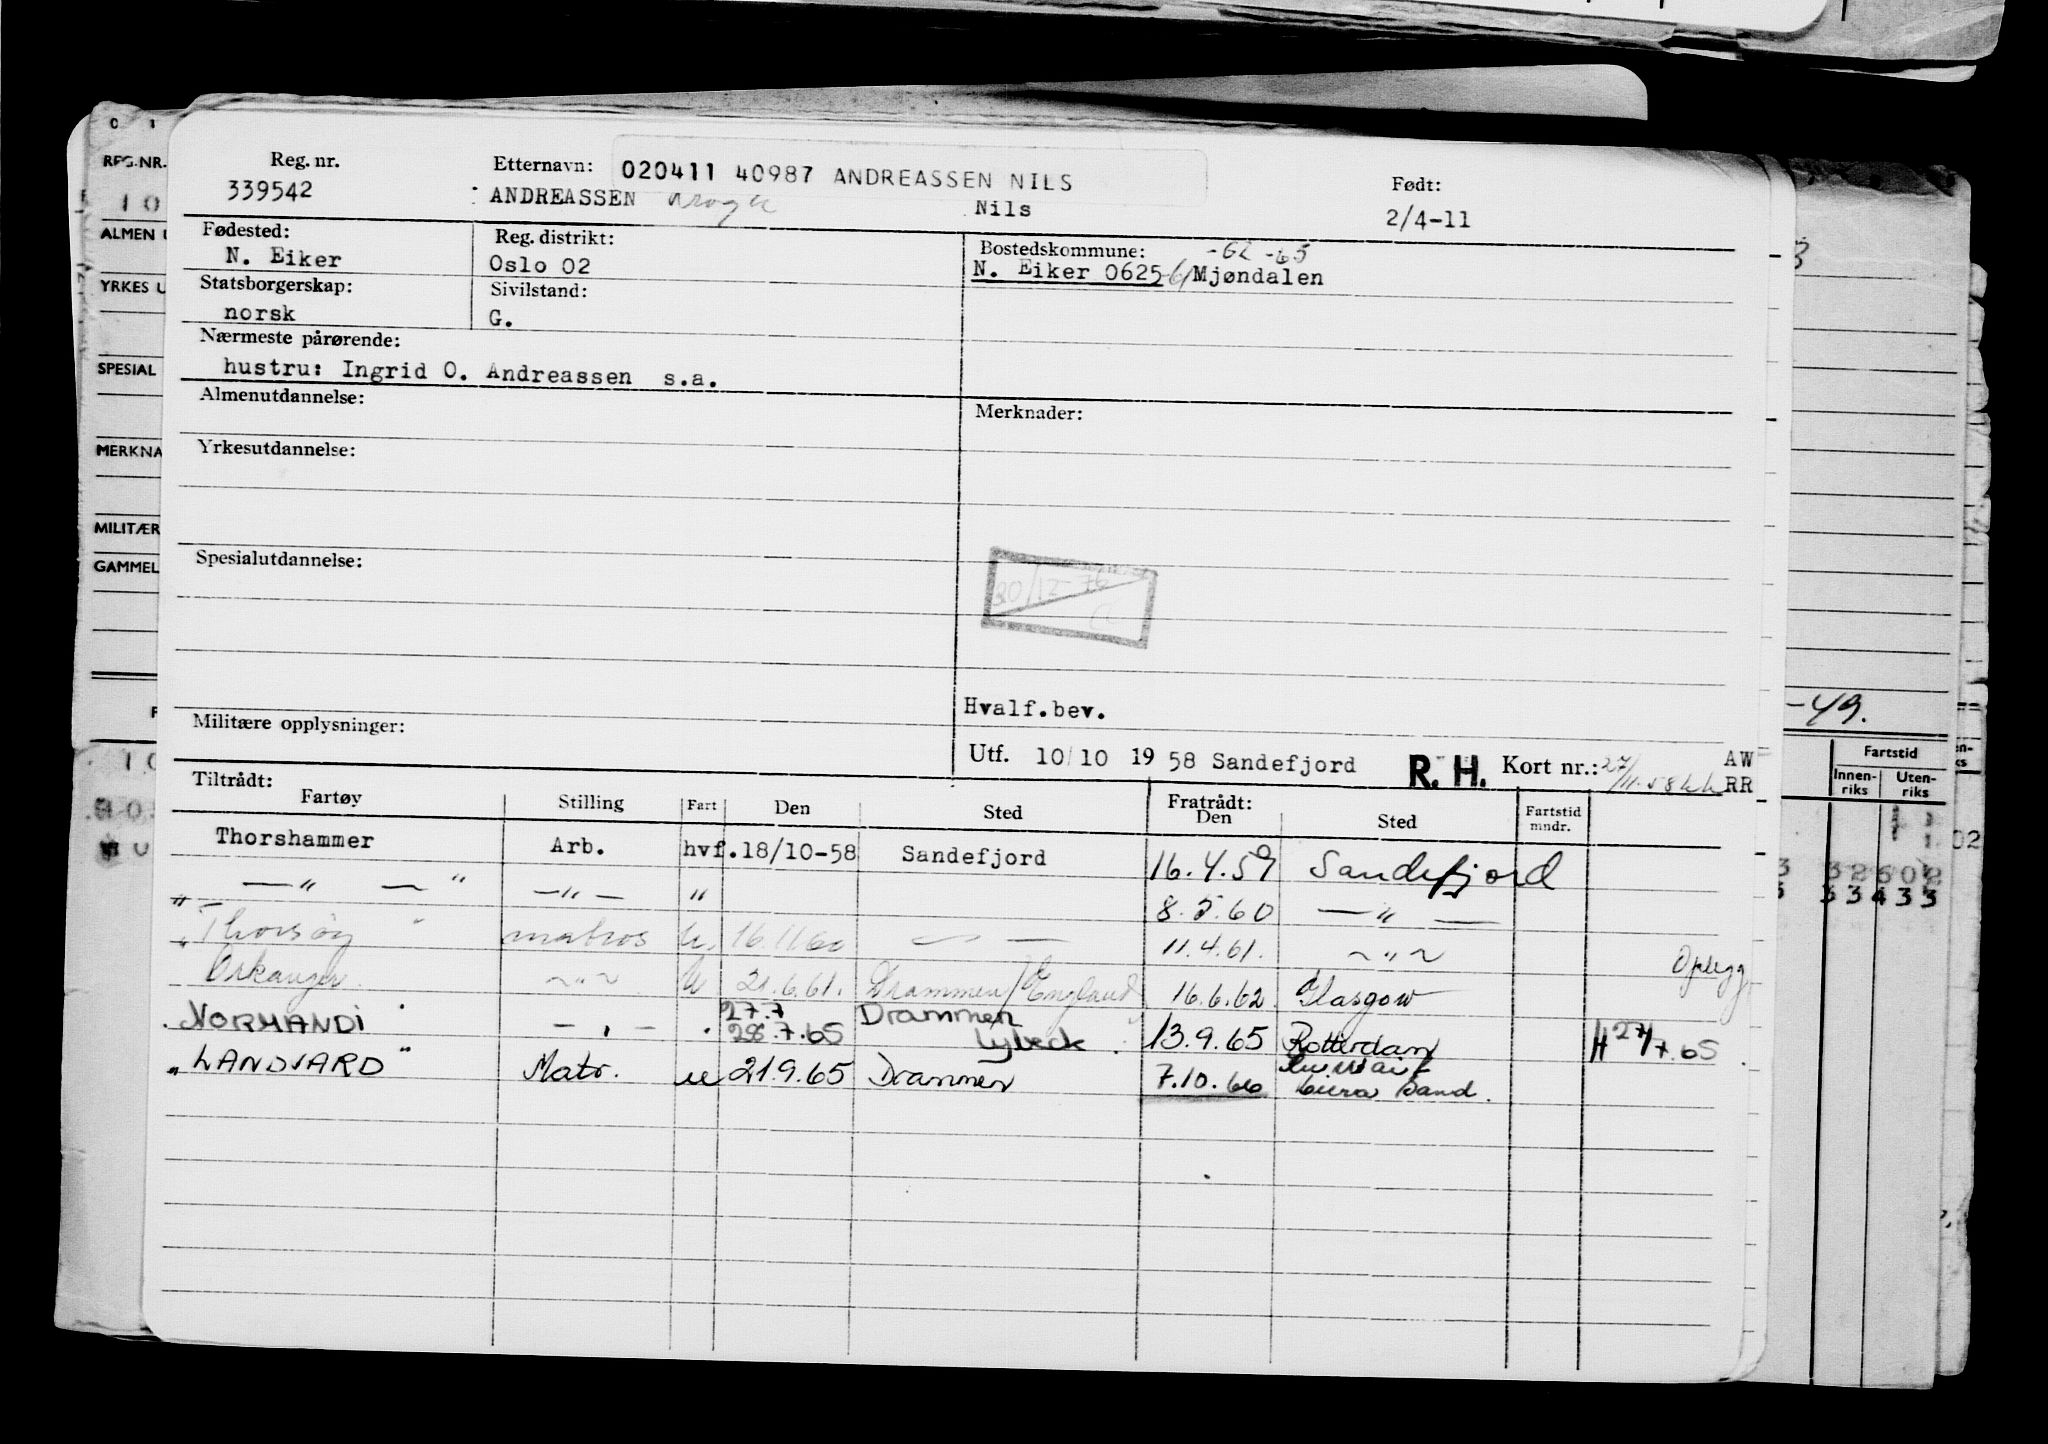 Reg. nr. Etternavn: 020411 40987 ANDREASSEN NILS Født:
339542 ANDREASSEN Nils 2/4-11
Fødested: Reg. distrikt: Bostedskommune: -62 -65
N. Eiker Oslo 02 N. Eiker 0625 Mjøndalen
Statsborgerskap: Sivilstand:
norsk G.
Nærmeste pårørende:
hustru: Ingrid O. Andreassen s.a.
Almenutdannelse: Merknader:
Yrkesutdannelse:
Spesialutdannelse:
Hvalf.bev.
Militære opplysninger:
Utf. 10/10 1958 Sandefjord R.H. Kort nr.: 27/11.58 AW
RR
Tiltrådt: Fratrådt:
Fartøy Stilling Fart Den Sted Den Sted Fartstid mndr.
Thorshammer Arb. hvf. 18/10-58 Sandefjord 16.4.59 Sandefjord
—"— " —"— " 8.5.60 —"—
" Thorsøy " matros 16.11.60 — — 11.4.61. ~"~
" Orkanger ~"~ 21.6.61. Drammen/England 16.6.62 Glasgow Oplegg
27.7 Drammen
" NORMANDI " —"— " 28.7.65 Lybeck 13.9.65 Rotterdam H 27/7.65
" LANDVARD " Matr. u 21.9.65 Drammen 7.10.66 Sand.
REG.NR.
10
ALMEN U
YRKES U
SPESIAL
MERKNA
MILITÆR
GAMMEL
-49.
Fartstid
Innen-riks Uten-riks